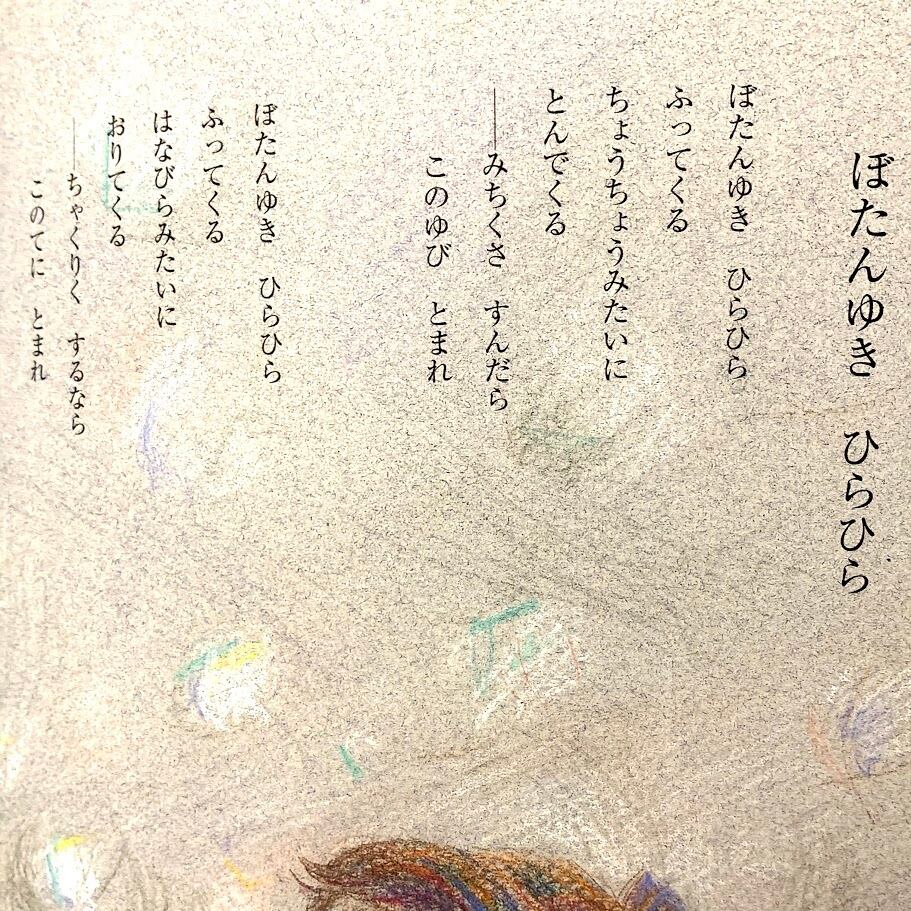 ぼたんゆき　ひらひら
ぼたんゆき　ひらひら
ふってくる
ちょうちょうみたいに
とんでくる
――みちくさ　すんだら
このゆび　とまれ
ぼたんゆき　ひらひら
ふってくる
はなびらみたいに
おりてくる
――ちゃくりく　するなら
このてに　とまれ